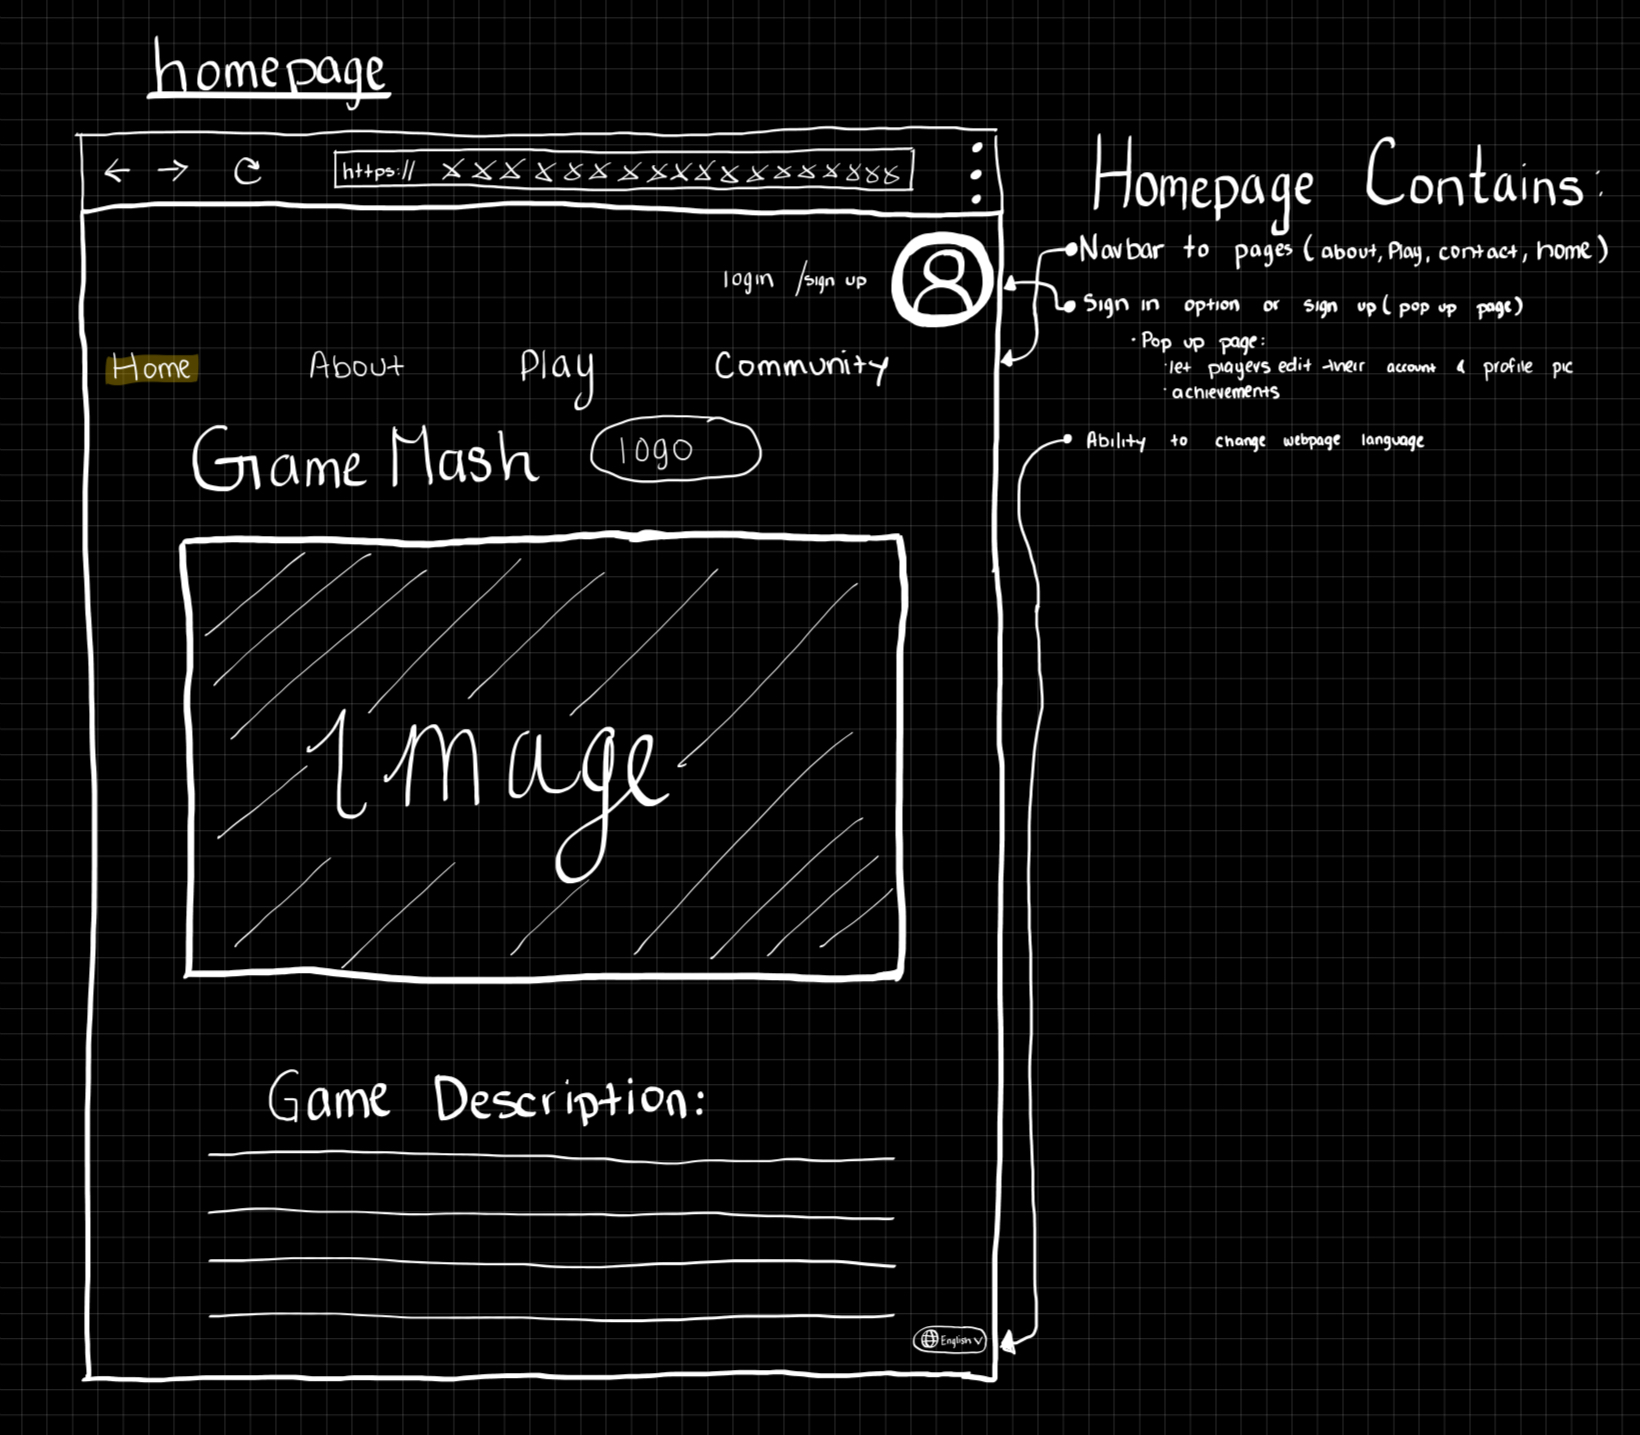 homepage
https:// xxxxxxxxxxxxxxxxxx
login /sign up
Home About Play Community
Game Mash logo
Image
Game Description:
English v
Homepage Contains:
Navbar to pages (about, Play, contact, home)
Sign in option or sign up (pop up page)
· Pop up page:
· let players edit their account & profile pic
· achievements
Ability to change webpage language